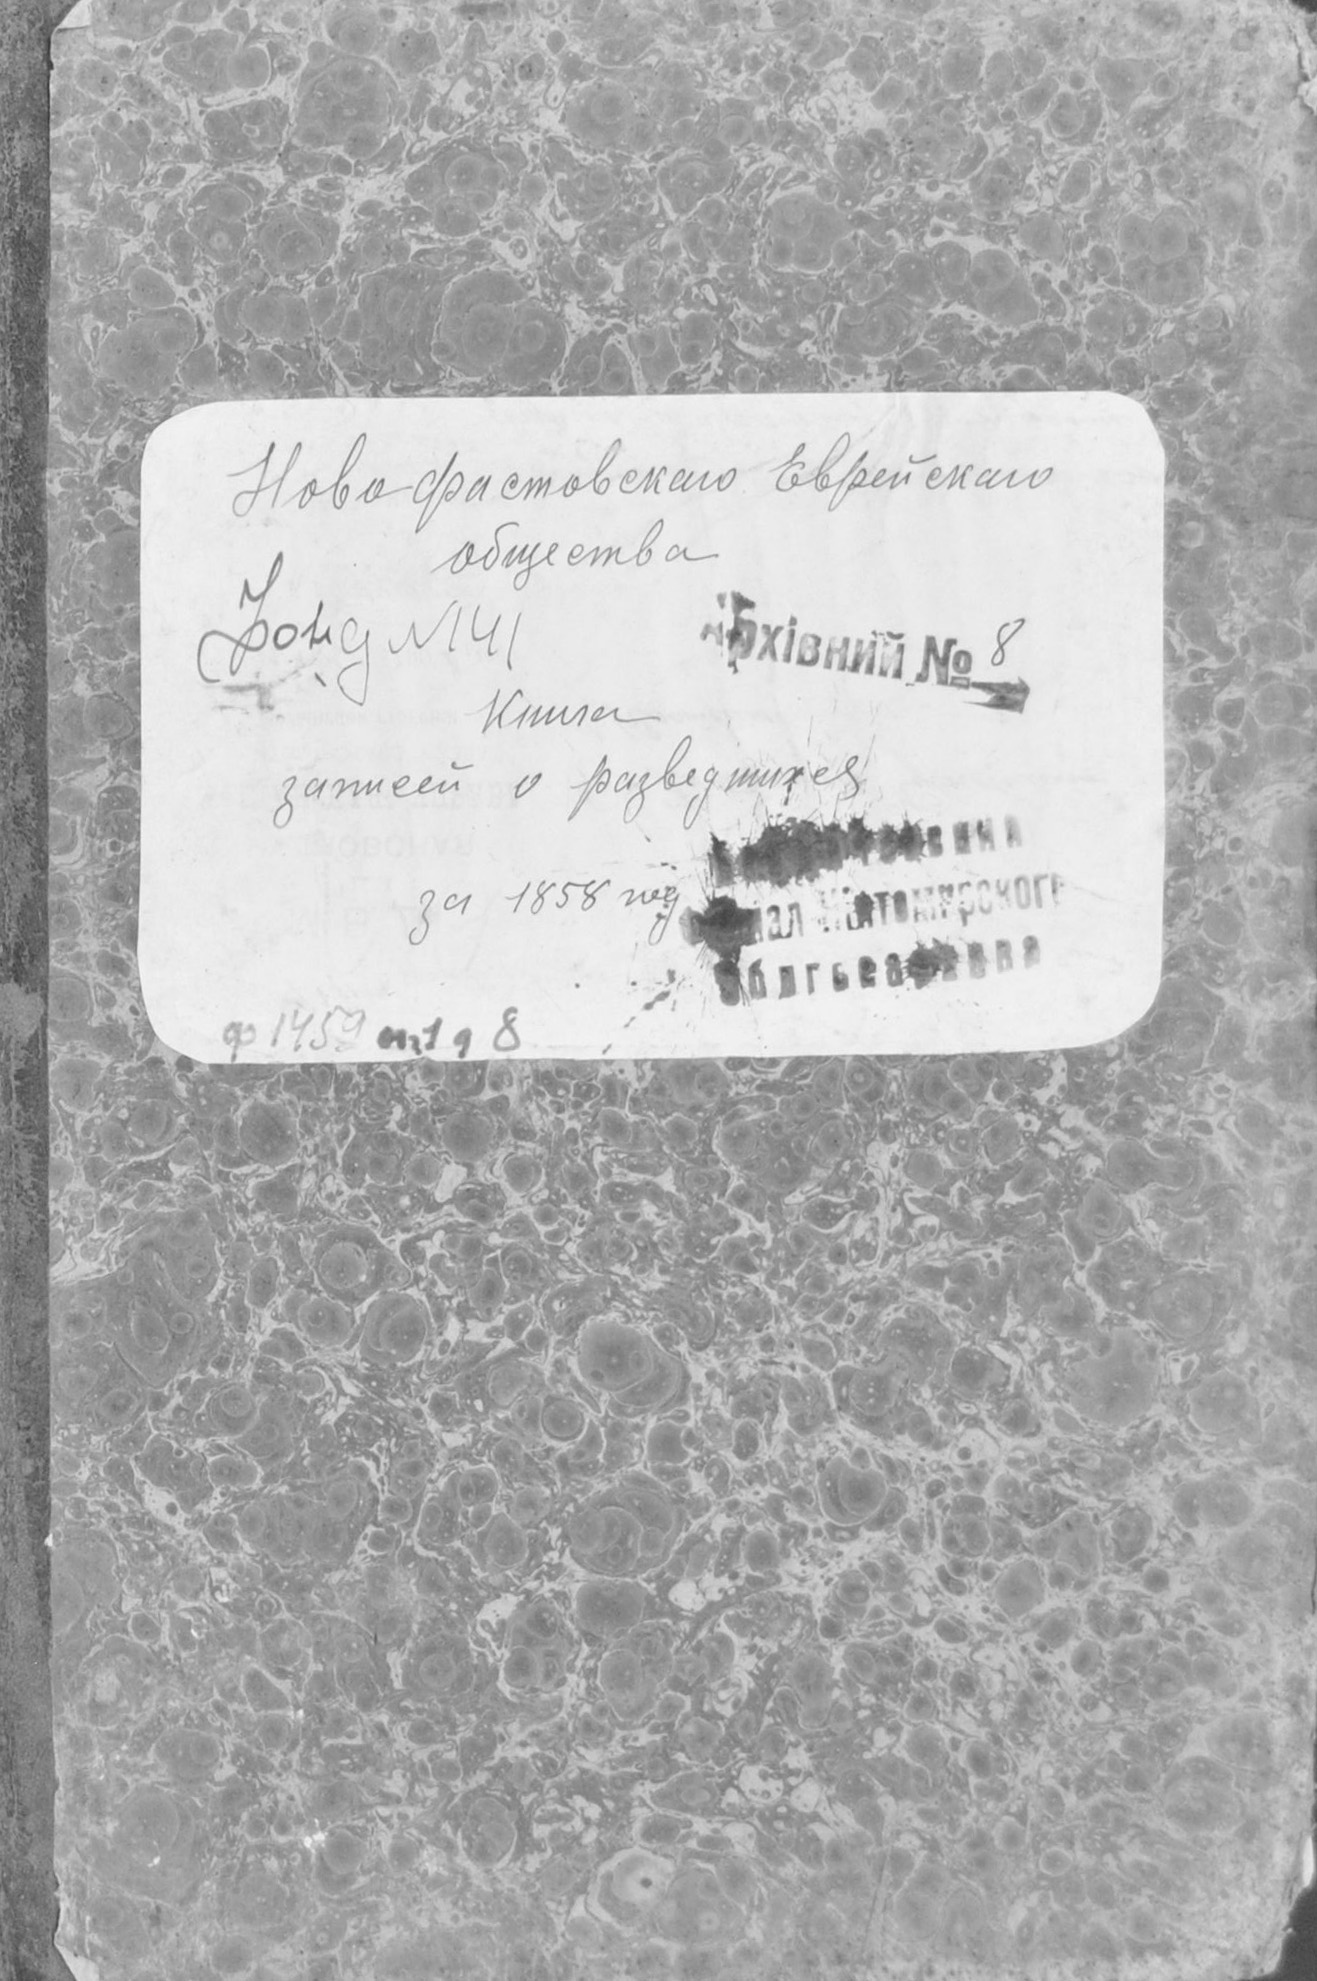 Ново-фастовскаго Еврейскаго
общества
Фонд №141
Архівний № 8
Книга
записей о разведшихся
за 1858 год
филиал Житомирского
Облгосархива
ф 1459 оп 1 д 8